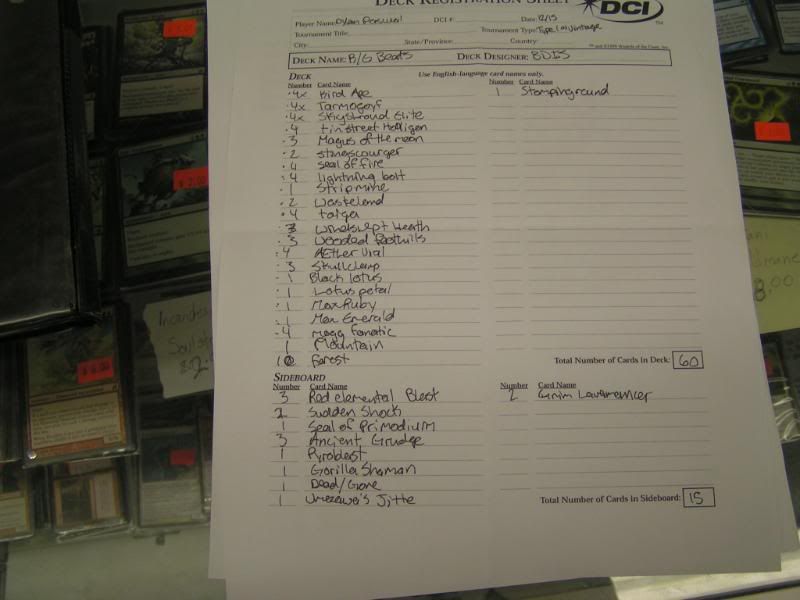 DECK REGISTRATION SHEET
DCI
Player Name: Dylan
DCI #:
Date: 12/15
Tournament Title:
Tournament Type: Type 1 on Vintage
City:
State/Province:
Country:
DECK NAME: R/G Beats
DECK DESIGNER: BDIS
DECK
Use English-language card names only.
Number Card Name
4x Bird Ape
4x Tarmogoyf
4x Skyshroud Elite
4 tinstreet Hooligan
3 Magus of the moon
2 stingscourger
4 seal of fire
4 lightning bolt
1 Stripmine
2 wasteland
4 taiga
3 windswept Heath
3 wooded foothills
4 AEther Vial
3 Skullclamp
1 Black lotus
1 Lotus petal
1 Mox Ruby
1 Mox Emerald
4 mogg fanatic
1 Mountain
1 Forest
1 Stompinground
Total Number of Cards in Deck: 60
SIDEBOARD
Number Card Name
3 Red elemental Blast
2 Sudden Shock
1 Seal of Primodium
3 Ancient Grudge
1 Pyroblast
1 Gorilla Shaman
1 Dead/Gone
1 Umezawa's Jitte
Number Card Name
2 Grim Lavamancer
Total Number of Cards in Sideboard: 15
Soulst
$2.00
8.00